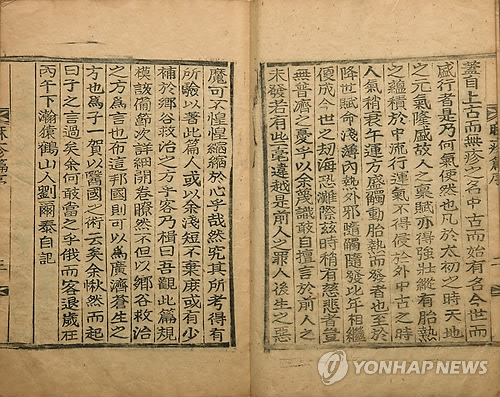 蓋自上古而無疹之名中古而始有名今世而
盛行者是乃何氣使然也凡於太初之時天地
之元氣隆盛故人之稟賦亦得强壯縱有胎熱
之蘊積於中流行運氣不得侵於外中古之時
人氣稍衰午運方盛觸動胎熱而發者也至於
降世賦命淺薄內熱外邪隨觸隨發比年相繼
便成今世之刼海恐灘際玆時稍有慈悲者豈
無普濟之憂乎以余蔑識敢自擅言於前人之
未發若有些毫違越是前人之罪人後生之惡
魔可不惶惶緬緬於心乎哉然究其所考得有
所驗以著此篇人或以余淺短不棄庶或有少
補於鄉谷救治之方乎客乃楫曰吾觀此篇規
模該備節次詳細開卷瞭然不但以鄉谷救治
之方一言也布這邦國則可以爲廣濟蒼生之
方也爲子一賀以醫國之術云矣余愀然而起
曰子之言過矣余何敢當之乎俄而客退歲在
丙午下瀚猿鶴山人劉爾泰自記
麻疹篇序
YONHAP NEWS